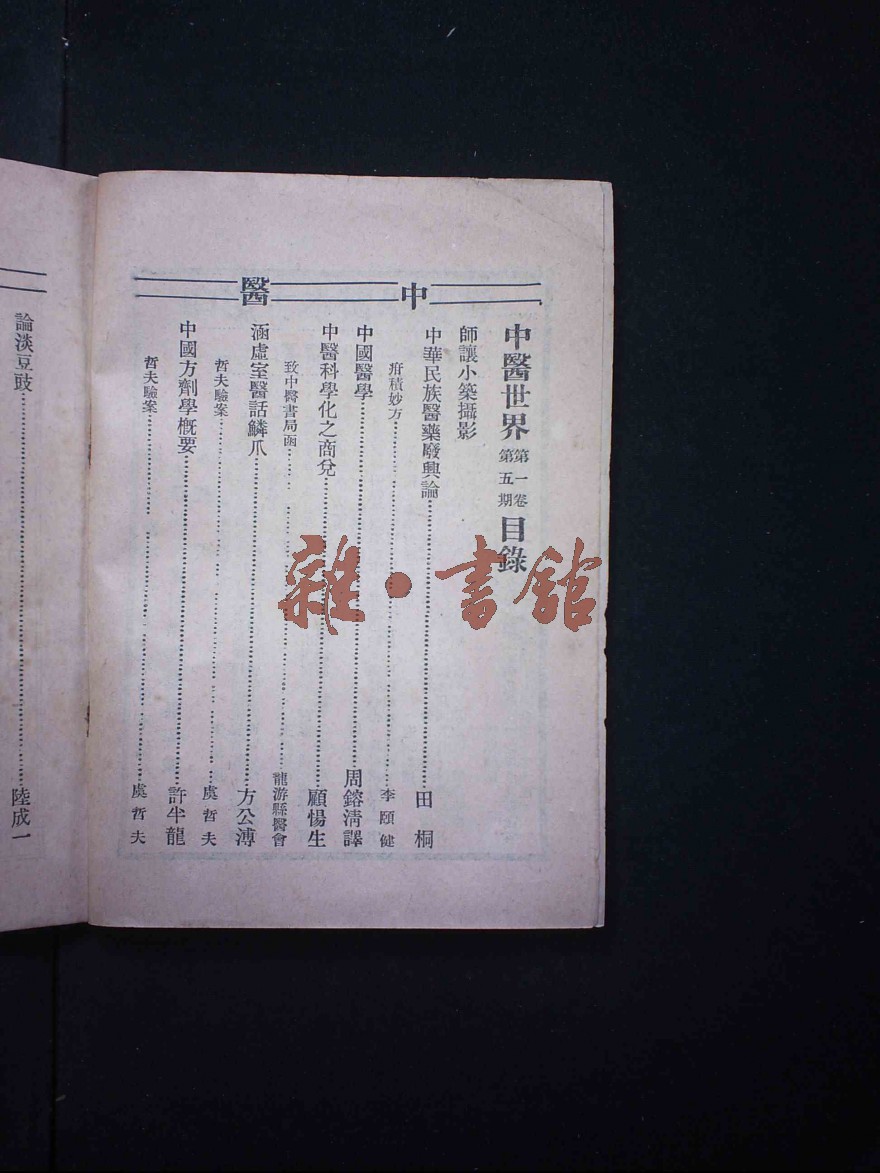 中醫
中醫世界 第一卷 第五期 目錄
師讓小築攝影
中華民族醫藥廢興論 田桐
疳積妙方 李頤健
中國醫學 周鎔清譯
中醫科學化之商兌 顧惕生
致中醫書局函 龍游縣醫會
涵虛室醫話鱗爪 方公溥
哲夫驗案 虞哲夫
中國方劑學概要 許半龍
哲夫驗案 虞哲夫
論淡豆豉 陸成一
雜·書館